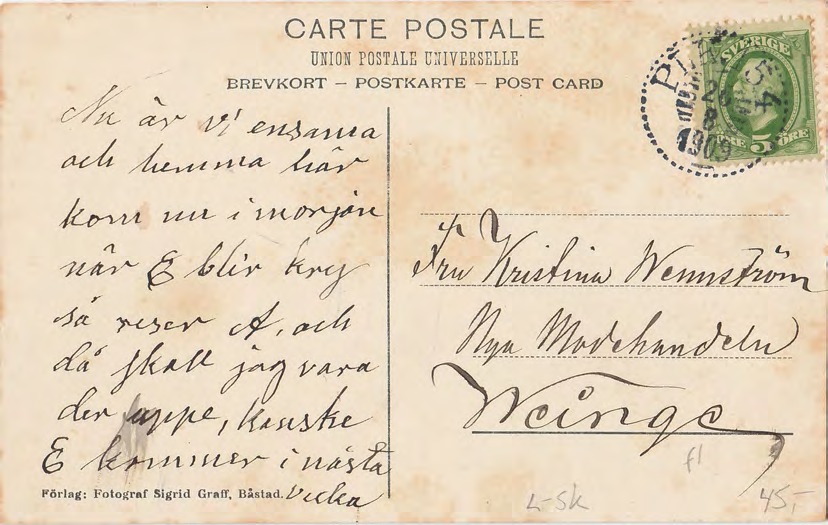 CARTE POSTALE
UNION POSTALE UNIVERSELLE
BREVKORT – POSTKARTE – POST CARD
SVERIGE
5
ÖRE
ÖRE
PLK
54
26
8
1909
Nu är vi ensama
och hemma här
kom nu i morgon
när E blir kry
så reser A, och
då skall jag vara
der uppe, kanske
E kommer i nästa
vecka
Fru Kristina Wennström
Nya Modehandeln
Weinge
Förlag: Fotograf Sigrid Graff, Båstad.
fl
L-SK
45,-